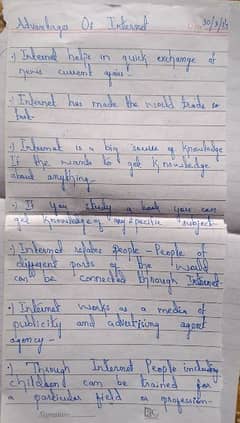 Advantage Of Internet
:) Internet helps in quick exchange of
news current
:) Internet has made the world trade so
fast.
:) Internet is a big source of knowledge
If the wants to get knowledge
about anything.
:) If you study a book you can
get knowledge of any specific subject
:) Internet relates people - People of
different parts of the world
can be connected through Internet.
:) Internet works as a media of
publicity and advertising agent
agency -
:) Through Internet People including
children can be trained for
a particular field or profession.
Signature